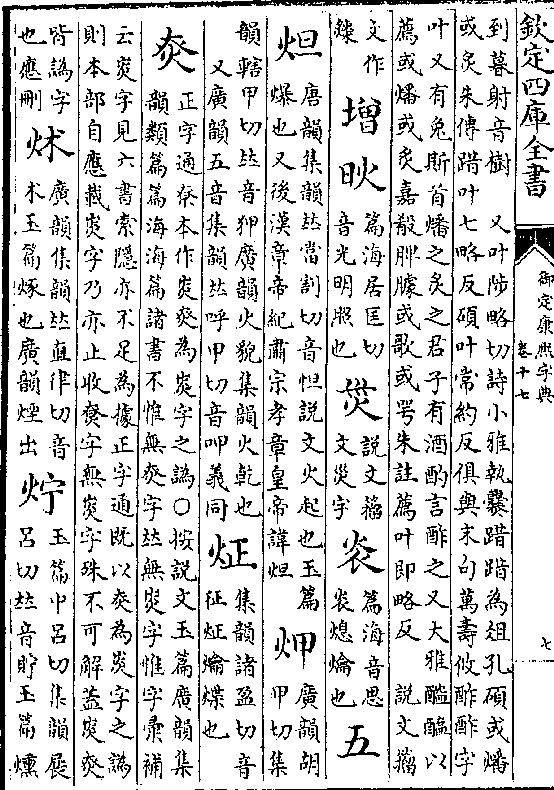 欽定四庫全書
御定康熙字典
卷十七
七
到暮射音樹　又叶陟略切詩小雅執爨踖踖為俎孔碩或燔
或炙朱傳踖叶七略反碩叶常約反俱與末句萬壽攸酢酢字
叶又有兔斯首燔之炙之君子有酒酌言酢之又大雅醓醢以
薦或燔或炙嘉殽脾臄或歌或咢朱註薦叶即略反　說文籀
文作
增
炚
篇海居匡切
音光明照也
說文籀
文災字
篇海音思
熄爚也
五
炟
唐韻集韻𠀤當割切音怛說文火起也玉篇
爆也又後漢章帝紀肅宗孝章皇帝諱炟
炠
廣韻胡
甲切集
韻轄甲切𠀤音狎廣韻火貌集韻火乾也
又廣韻五音集韻𠀤呼甲切音呷義同
炡
集韻諸盈切音
征炡爚煠也
正字通本作為字之譌○按說文玉篇廣韻集
韻類篇篇海海篇諸書不惟無字𠀤無字惟字彙補
云字見六書索隱亦不足為據正字通既以為字之譌
則本部自應載字乃亦止收字無字殊不可解蓋
皆譌字
也應刪
炢
廣韻集韻𠀤直律切音
术玉篇也廣韻煙出
玉篇中呂切集韻展
呂切𠀤音貯玉篇燻